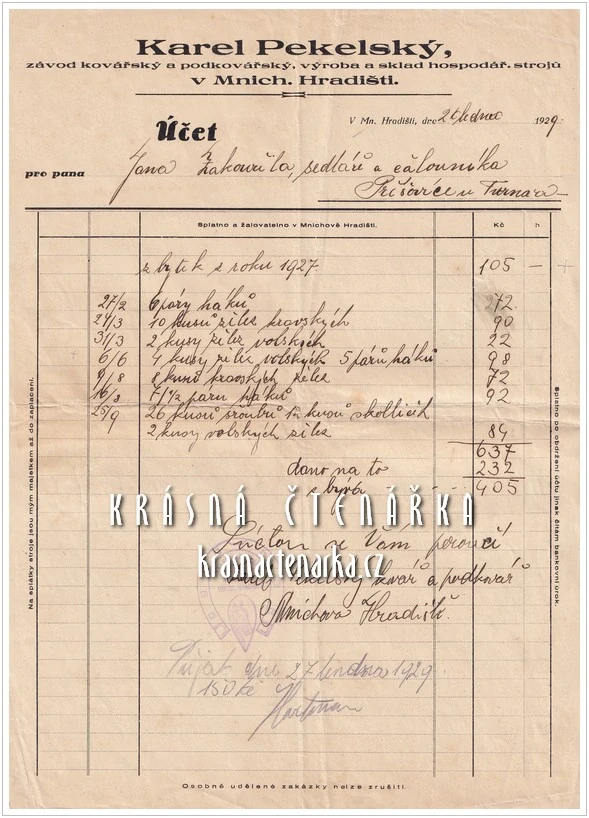 Karel Pekelský,
závod kovářský a podkovářský, výroba a sklad hospodář. strojů
v Mnich. Hradišti.
V Mn. Hradišti, dne 2 ledna 1929.
Účet
pro pana Jana Žakouřila, sedláře a čalouníka
Příšovice u Turnova
Splatno a žalovatelno v Mnichově Hradišti. Kč h
zbytek s roku 1927 105 —
27/2 6 páry háků 272
24/3 10 kusů žilek kravských 90
31/3 2 kusy žilek volských 22
6/6 4 kusy žilek volských 5 párů háků 98
9/8 8 kusů kravských žilek 72
16/8 7 1/2 páru háků 92
25/9 26 kousků šroubů kusů
2 kusy volských žilek 84
637
dáno na to 232
zbývá 405
KRÁSNÁ ČTENÁŘKA
krasnactenarka.cz
S úctou se Vám poroučí
Karel Pekelský kovář a podkovář
Mnichovo Hradiště.
Přijato dne 27 ledna 1929.
150 kč
Hartman
Na splátky stroje jsou mým majetkem až do zaplacení.
Splatno po obdržení účtu jinak čítám bankovní úrok.
Osobně udělené zakázky nelze zrušiti.